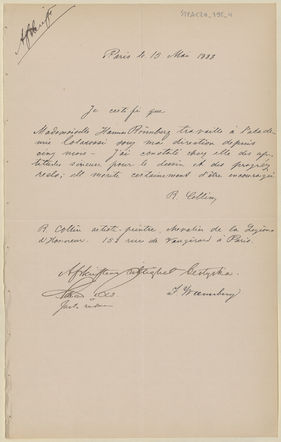 Afskrift
Paris le 13 Mai 1883
Je certifie que
Mademoiselle Hanna Rönnberg travaille à l'acade-
mie Colarossi sous ma direction depuis
cinq mois - J'ai constaté chez elle des ap-
titudes pour le dessin et des progrès
elle mérite d'être encouragée
R. Collin
R. Collin artiste peintre, chevalier de la Legion
d'Honneur. 152 rue de Vaugirard à Paris.
Afskriftens riktighet bestyrka